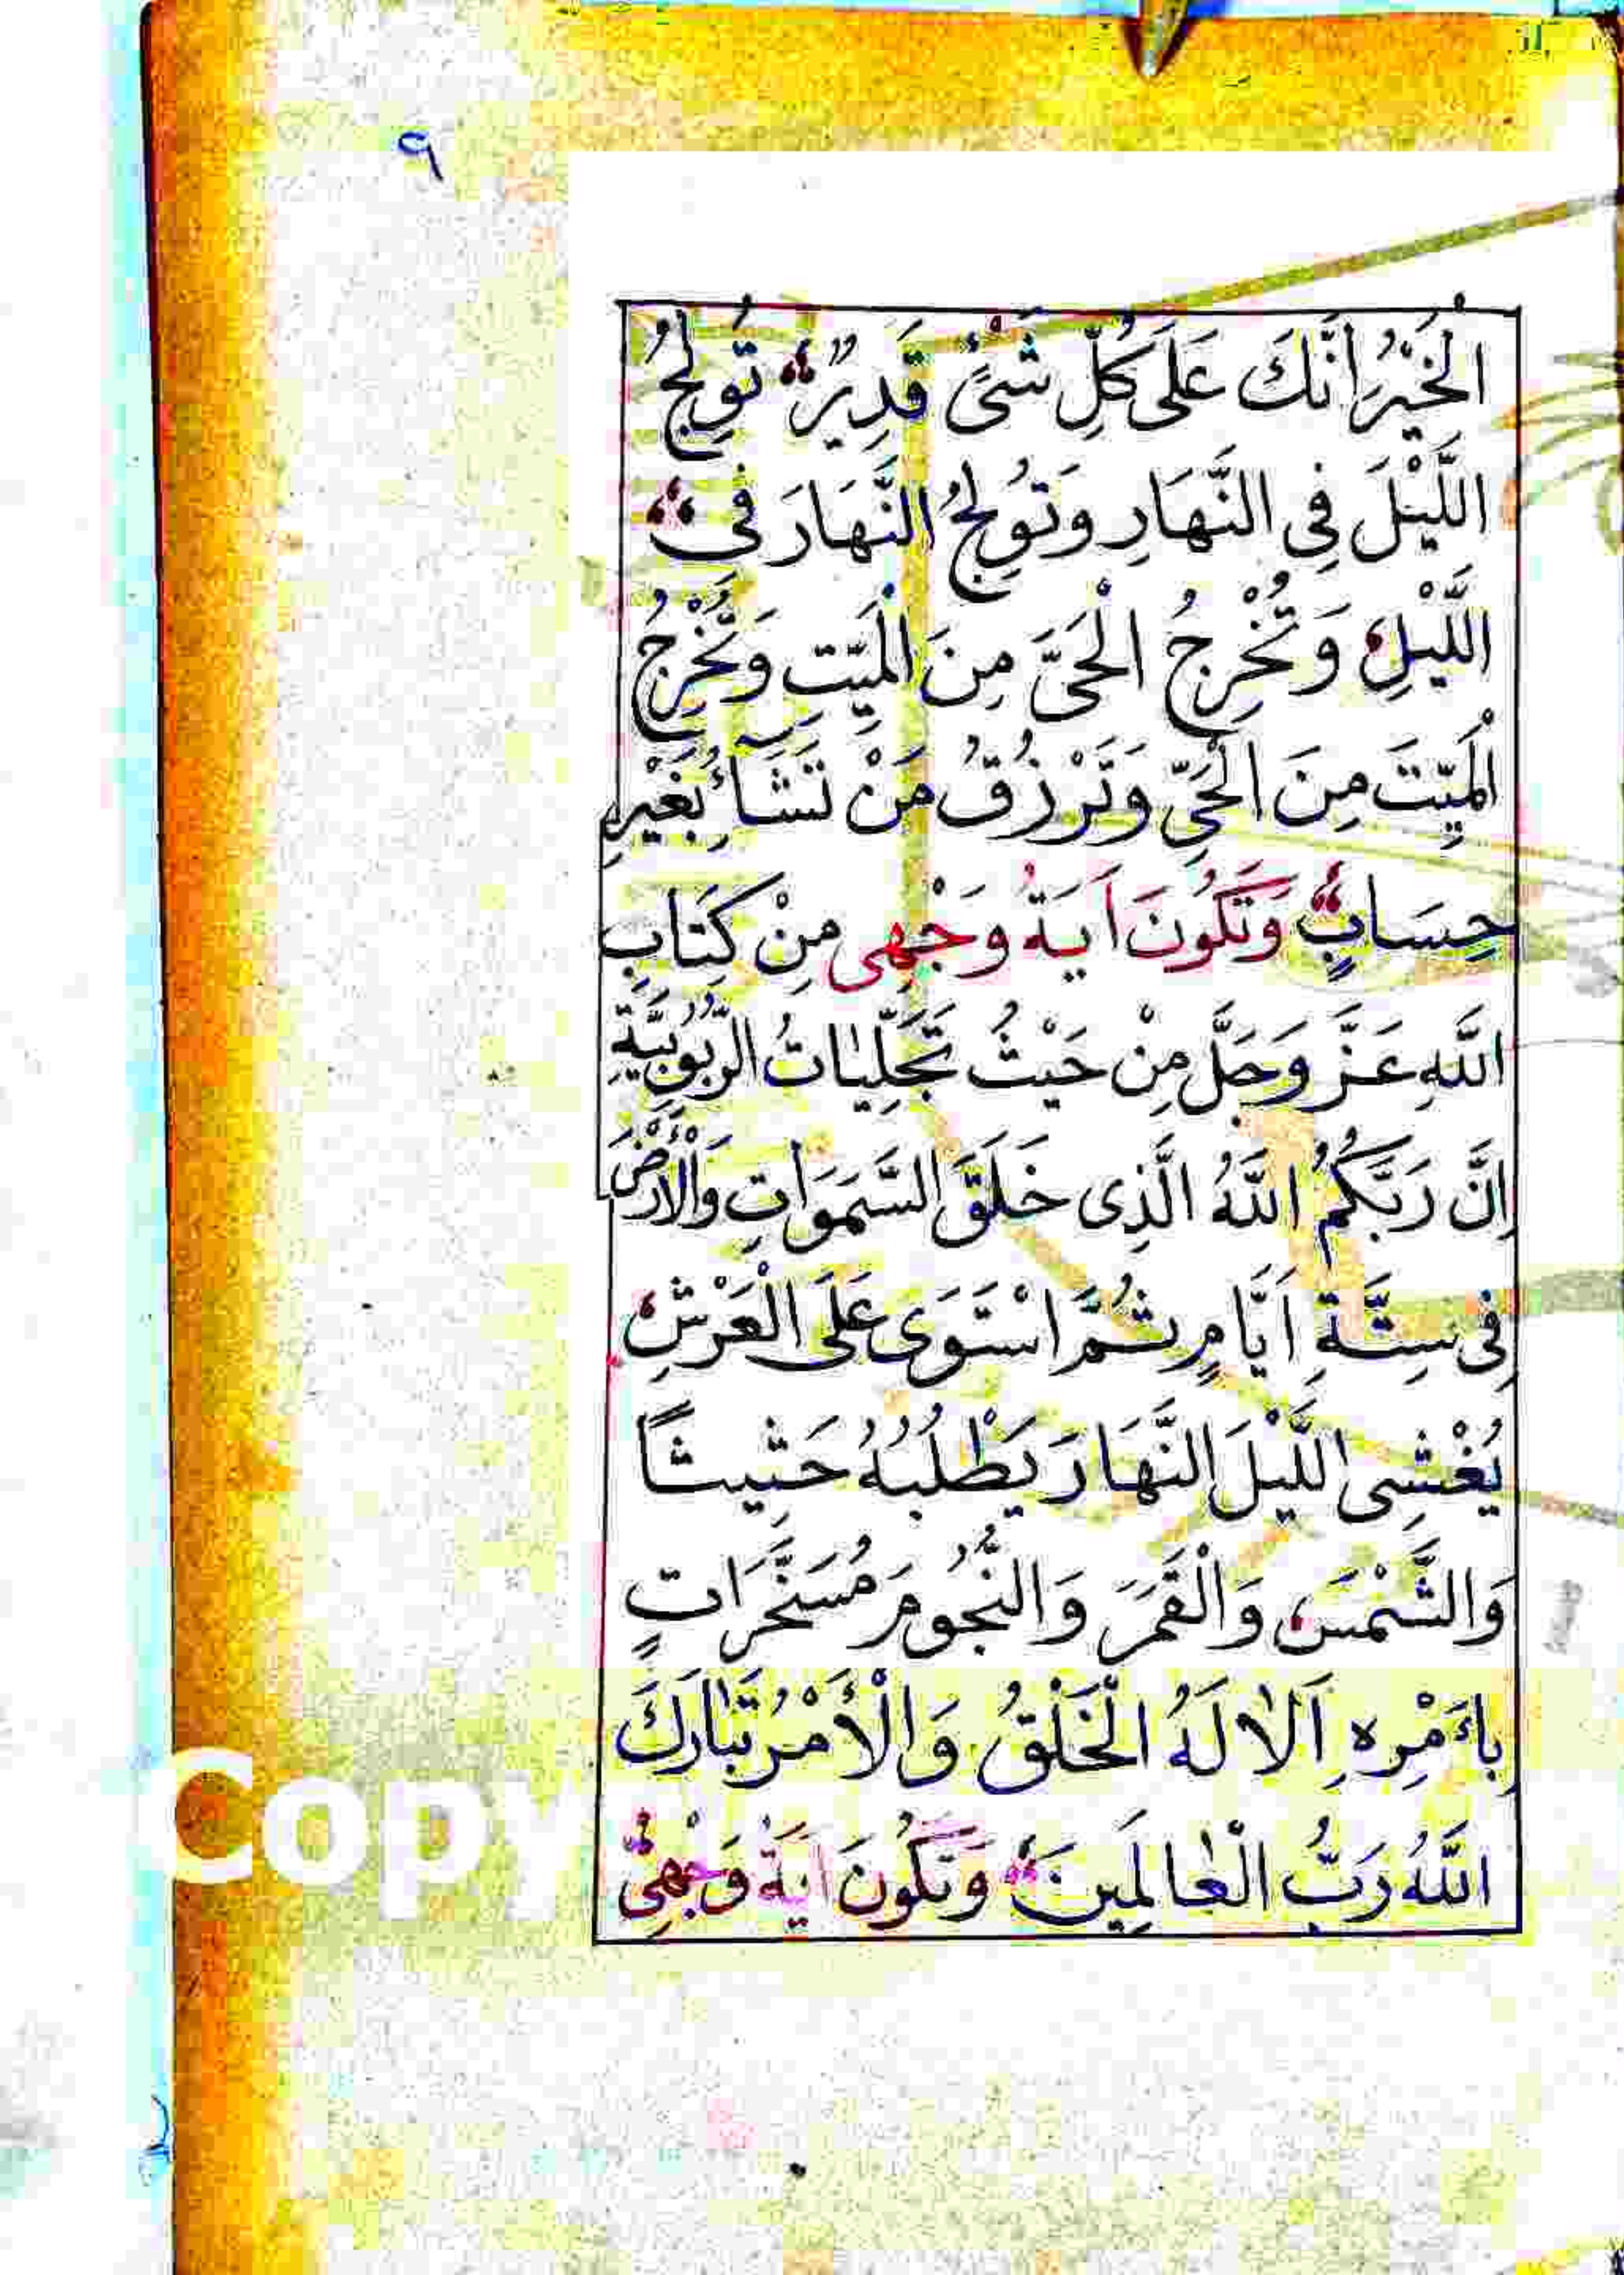 ٩
الْخَيْرُ اِنَّكَ عَلَى كُلِّ شَىْءٍ قَدِيرٌ تُولِجُ
اللَّيْلَ فِى النَّهَارِ وَتُولِجُ النَّهَارَ فِى
اللَّيْلِ وَتُخْرِجُ الْحَىَّ مِنَ الْمَيِّتِ وَتُخْرِجُ
الْمَيِّتَ مِنَ الْحَىِّ وَتَرْزُقُ مَنْ تَشَاءُ بِغَيْرِ
حِسَابٍ وَتَكُونَ اَيَةُ وَجْهِى مِنْ كِتَابِ
اللَّهِ عَزَّ وَجَلَّ مِنْ حَيْثُ تَجَلِّيَاتُ الرُّبُوبِيَّةِ
اِنَّ رَبَّكُمُ اللَّهُ الَّذِى خَلَقَ السَّمَوَاتِ وَالْأَرْضَ
فِى سِتَّةِ اَيَّامٍ ثُمَّ اسْتَوَى عَلَى الْعَرْشِ
يُغْشِى اللَّيْلَ النَّهَارَ يَطْلُبُهُ حَثِيثًا
وَالشَّمْسَ وَالْقَمَرَ وَالنُّجُومَ مُسَخَّرَاتٍ
بِاَءمْرِهِ اَلَا لَهُ الْخَلْقُ وَالْأَمْرُ تَبَارَكَ
اللَّهُ رَبُّ الْعَالَمِينَ وَتَكُونَ اَيَةُ وَجْهِى
Copy